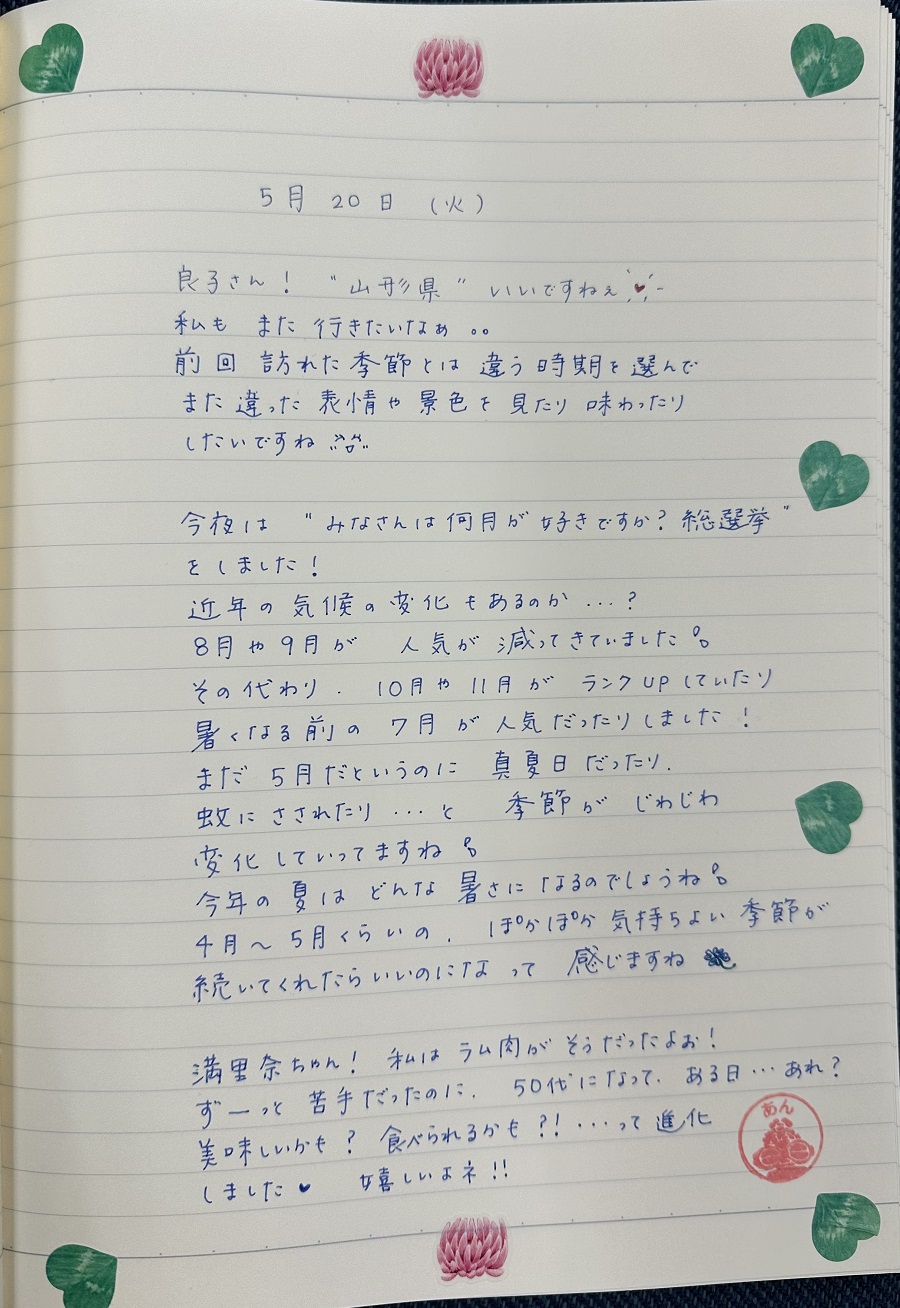 5月 20日 (火)
良子さん! "山形県" いいですねぇ
私も また 行きたいなぁ。。
前回 訪れた季節とは 違う時期を選んで
また違った 表情や 景色を 見たり 味わったり
したいですね
今夜は "みなさんは何月が好きですか?総選挙"
をしました!
近年の 気候の変化もあるのか...?
8月や9月が 人気が 減ってきていました。
その代わり、10月や11月が ランクUPしていたり
暑くなる前の 7月が人気だったりしました!
まだ5月だというのに 真夏日だったり、
蚊にさされたり...と 季節が じわじわ
変化していってますね。
今年の 夏は どんな 暑さに なるのでしょうね。
4月〜5月くらいの、ぽかぽか気持ちよい季節が
続いてくれたらいいのにな って 感じますね
満里奈ちゃん! 私は ラム肉が そうだったよぉ!
ずーっと 苦手だったのに、50代になって、ある日...あれ?
美味しいかも? 食べられるかも?!...って 進化
しました♥ 嬉しいよネ!!
あん